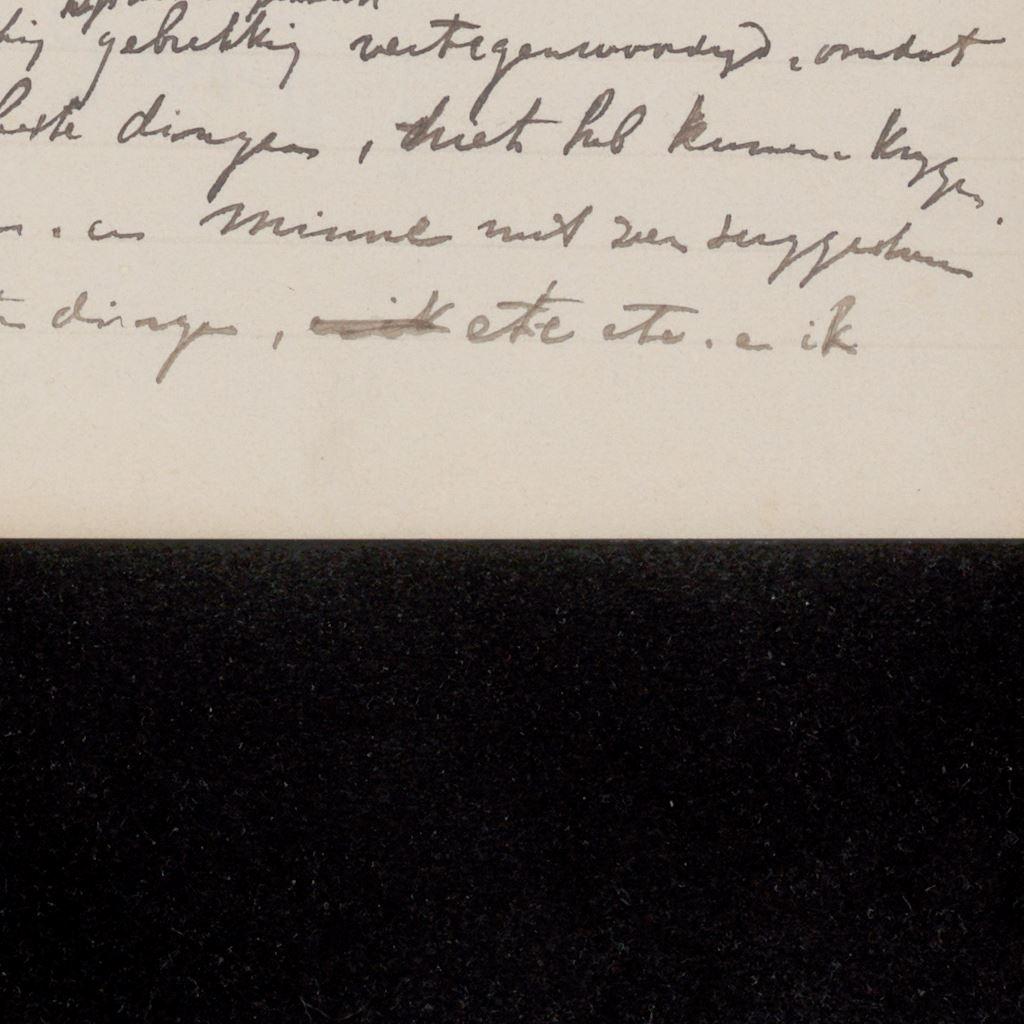 gebrekkig vertegenwoordigd, omdat
beste dingen, niet heb kunnen krijgen.
. en Minne met zijn
dingen, ik etc etc. en ik